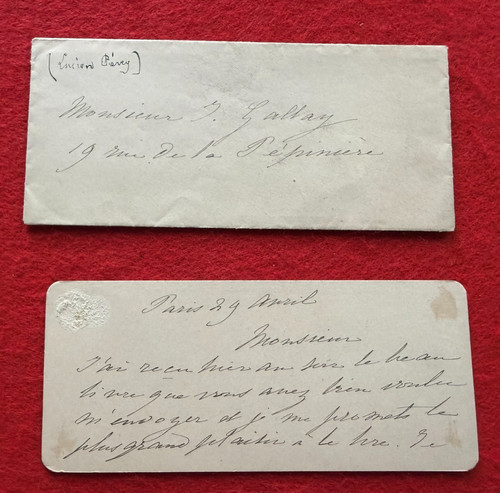 (Lucien Pérey)
Monsieur J. Gallay
19 rue de la Pépinière
Paris 29 avril
Monsieur
J'ai reçu hier au soir le beau
livre que vous avez bien voulu
m'envoyer et je me promets le
plus grand plaisir à le lire. Je